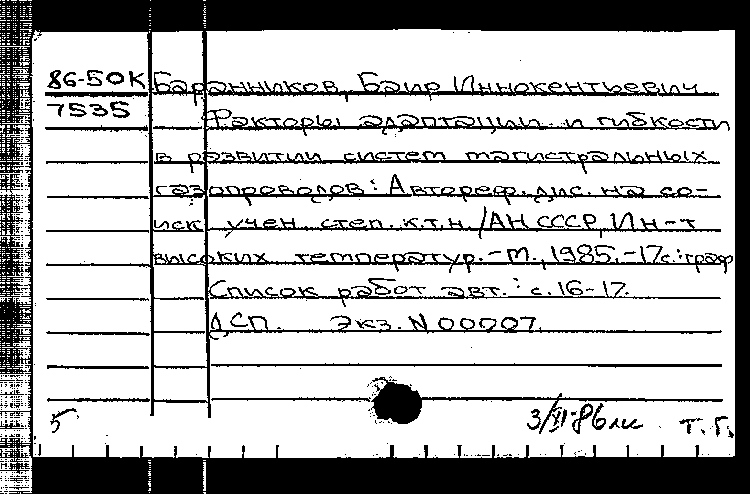 86-50К Баранников, Баир Иннокентьевич
7535 Факторы адаптации и гибкости
в развитии систем магистральных
газопроводов: Автореф. дис. на со-
иск. учен. степ. к.т.н. /АН СССР, Ин-т
высоких температур. - М., 1985. - 17с.: граф
Список работ авт.: с. 16-17.
ДСП. Экз. N 00007.
5 3/VI-86 т. г.